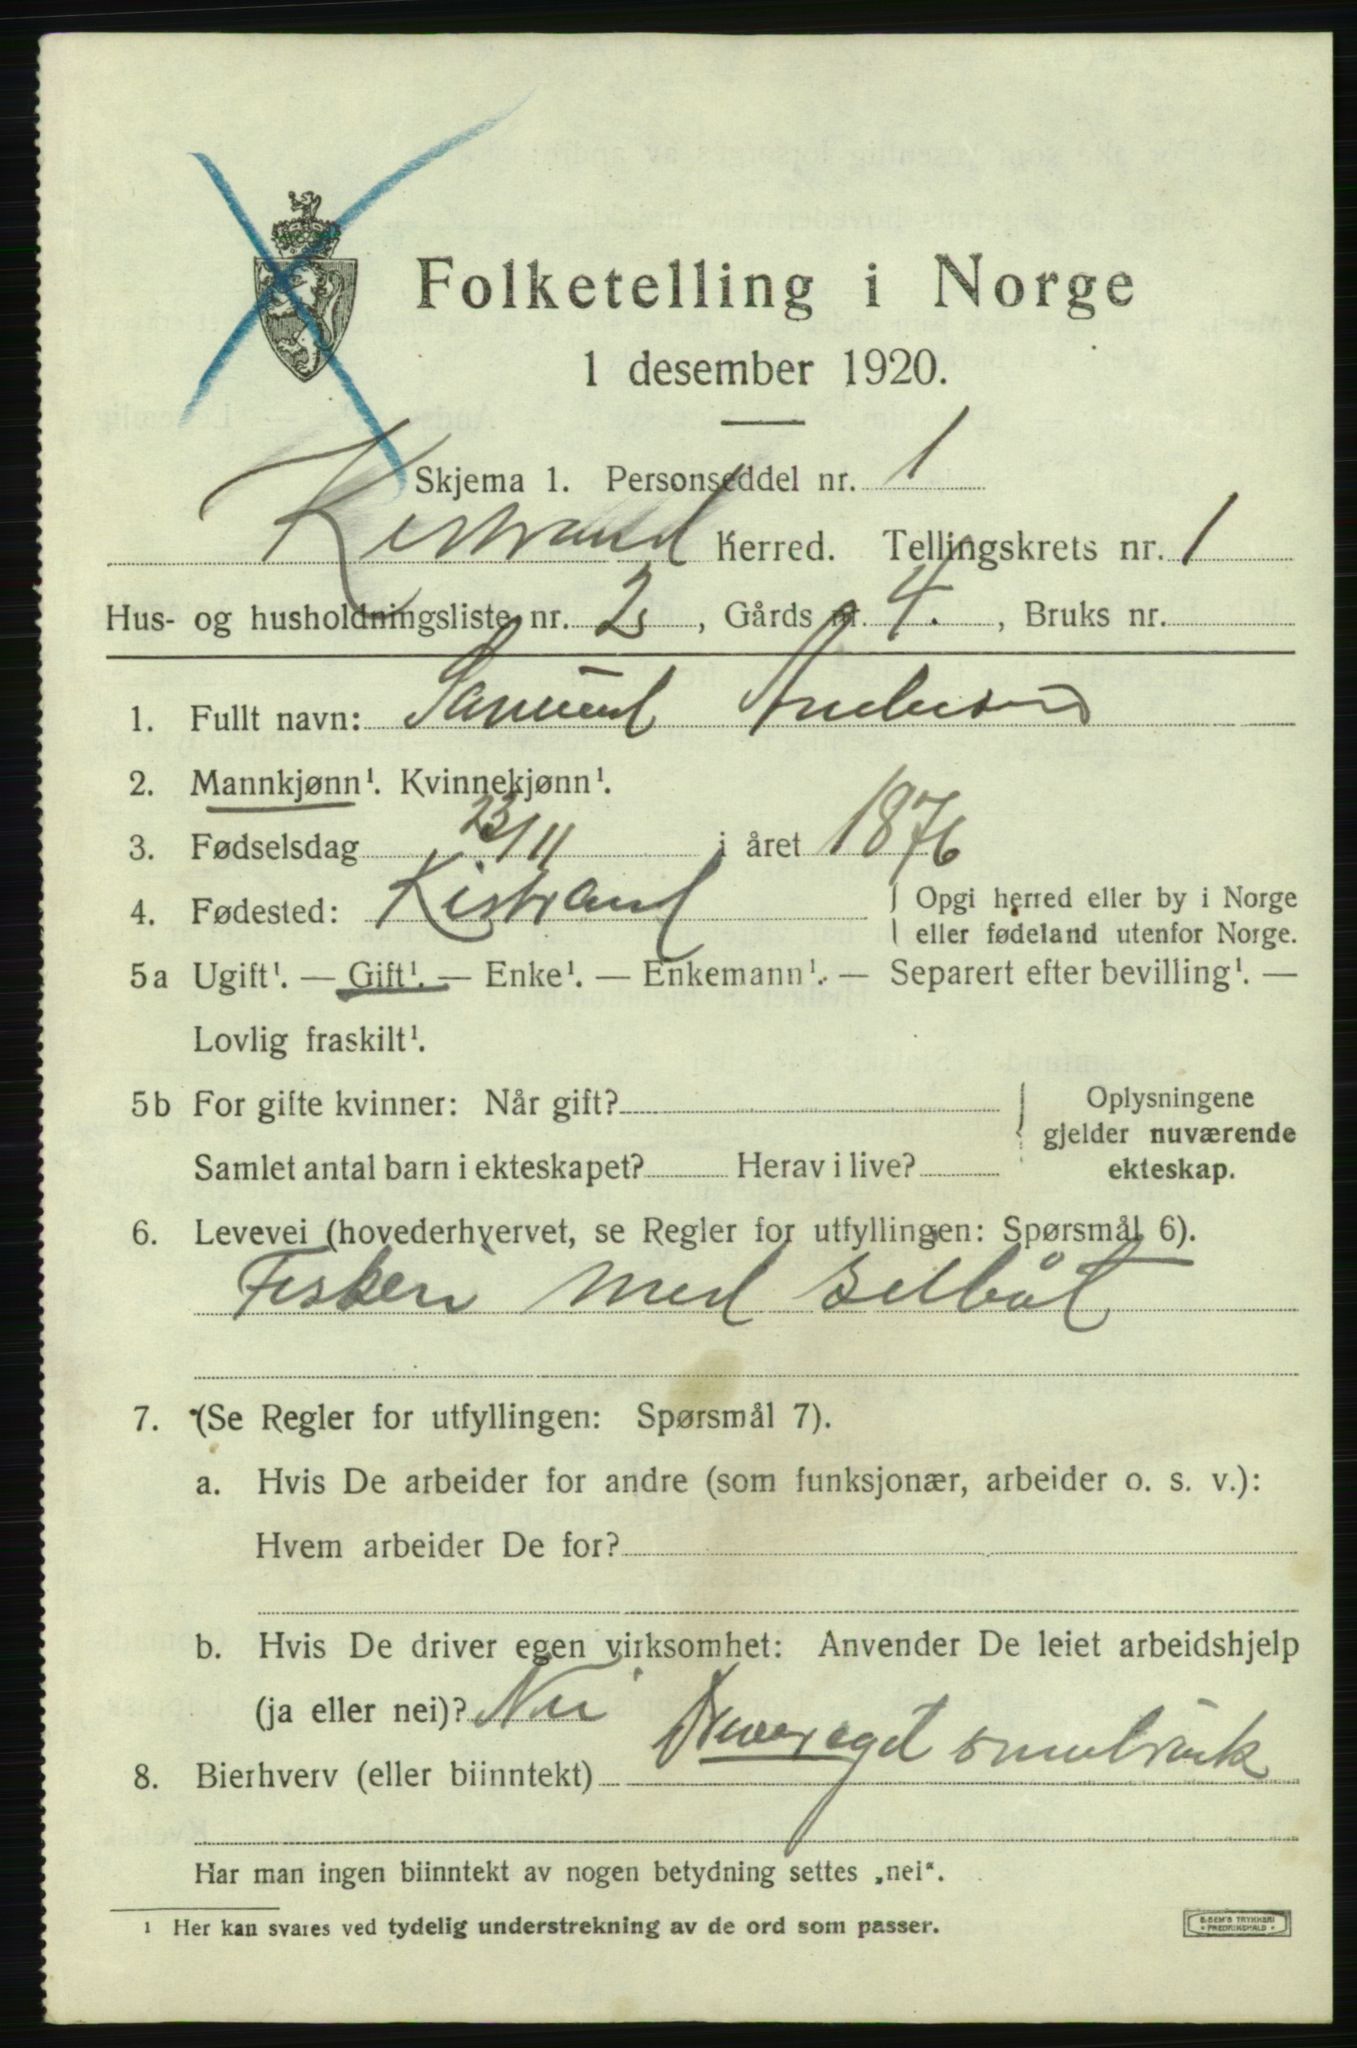 Folketelling i Norge
1 desember 1920.
Skjema 1. Personseddel nr. 1
Kistrand herred. Tellingskrets nr. 1
Hus- og husholdningsliste nr. 2, Gårds nr. 4., Bruks nr.
1. Fullt navn: Samuel Andersen
2. Mannkjønn¹. Kvinnekjønn¹.
3. Fødselsdag 23/11 i året 1876
4. Fødested: Kistrand { Opgi herred eller by i Norge
eller fødeland utenfor Norge.
5a Ugift¹. — Gift¹. — Enke¹. — Enkemann¹. — Separert efter bevilling¹. —
Lovlig fraskilt¹.
5b For gifte kvinner: Når gift? { Oplysningene
gjelder nuværende
Samlet antal barn i ekteskapet? Herav i live? ekteskap.
6. Levevei (hovederhvervet, se Regler for utfyllingen: Spørsmål 6).
Fisker med seilbåt
7. (Se Regler for utfyllingen: Spørsmål 7).
a. Hvis De arbeider for andre (som funksjonær, arbeider o. s. v.):
Hvem arbeider De for?
b. Hvis De driver egen virksomhet: Anvender De leiet arbeidshjelp
(ja eller nei)? Nei
8. Bierhverv (eller biinntekt) Driver eget småbruk
Har man ingen biinntekt av nogen betydning settes „nei“.
¹ Her kan svares ved tydelig understrekning av de ord som passer.
E. SEM'S TRYKKERI
FREDRIKSHALD